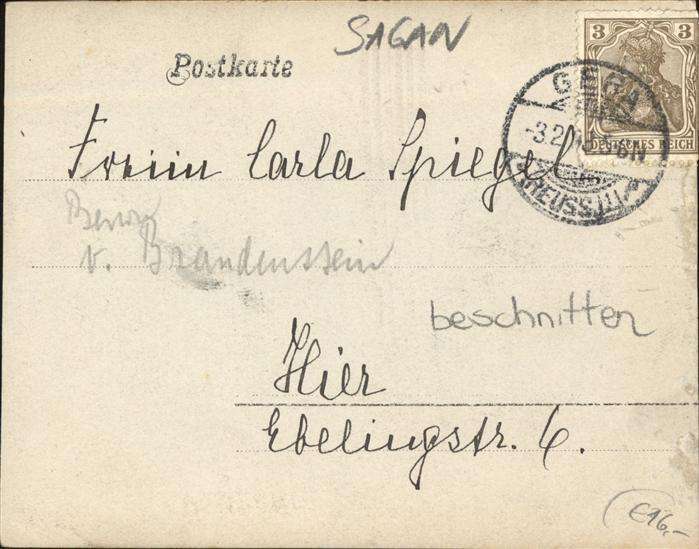 SAGAN
Postkarte
3 3
DEUTSCHES REICH
GERA
-3.2.
REUSS
Carla Spiegel
v. Brandenstein
beschnitten
Hier
Ebelingstr. 6.
€16,-